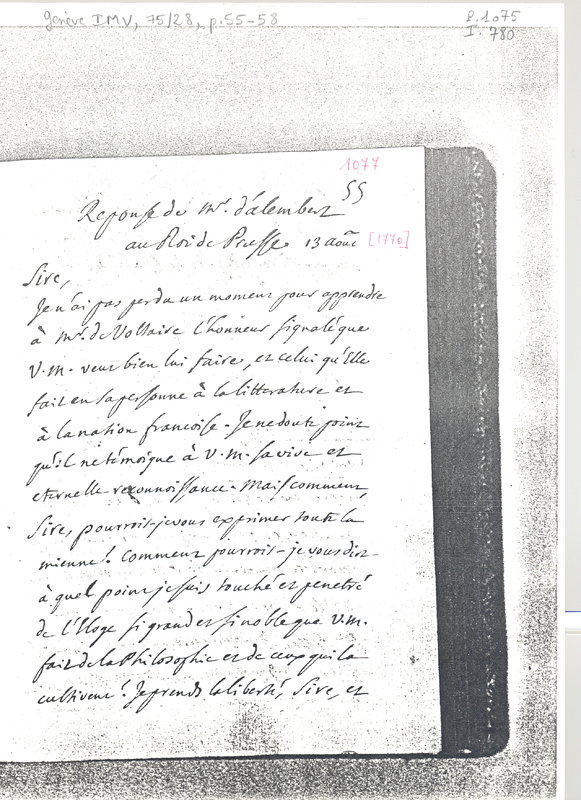 genève IMV, 75/28, p.55-58
P.1075
I. 780
1077
55
Reponse de mr. d'alembert
au Roi de Prusse 13 aoûc [1770]
Sire,
Je n'ai pas perdu un moment pour apprendre
à Mr. de Voltaire l'honneur signalé que
V.M. veut bien lui faire, et celui qu'Elle
fait en sa personne à la litterature et
à la nation françoise. Je ne doute point
qu'il ne témoigne à V.M. sa vive et
eternelle reconnoissance. Mais comment,
Sire, pourrois-je vous exprimer toute la
mienne! Comment pourrois-je vous dire
à quel point je suis touché et penetré
de l'Eloge si grand et si noble que V.M.
fait de la Philosophie et de ceux qui la
cultivent! Je prends la liberté, Sire, et